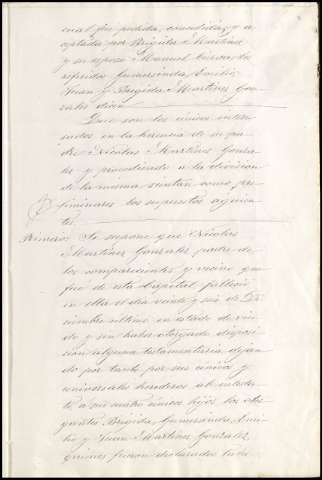 cual fué pedida, concedida, y a
ceptada por Brigida Martinez
y su esposo Manuel Cuevas, los
referidos Gumersinda, Emilio,
Juan y Brigida Martinez Gon
zalez dicen
Que son los únicos intere
sados en la herencia de su pa
dre Nicolas Martinez Gonza
lez y procediendo a la division
de la misma sientan como pre
liminares los supuestos siguien
tes
Primero. Se supone que Nicolas
Martinez Gonzalez, padre de
los comparecientes y vecino que
fue de esta Capital falleció
en ella el dia veinte y seis de Di
ciembre ultimo en estado de viu
do y sin haber otorgado disposi
cion alguna testamentaria dejan
do por tanto por sus únicos y
universales herederos ab intesta
to a sus cuatro únicos hijos los otor
gantes Brigida, Gumersinda, Emi
lio y Juan Martinez Gonzalez,
quienes fueron declarados tales